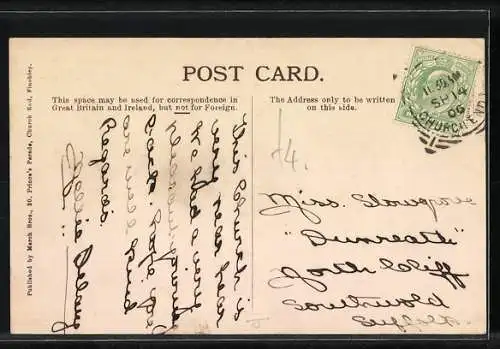 POST CARD.
This space may be used for correspondence in
Great Britain and Ireland, but not for Foreign.
The Address only to be written
on this side.
Published by March Bros., 20, Prince's Parade, Church End, Finchley.
This Church is
very near here
We had a very
pleasant journey
back. Hope you
are well. Kind
Regards.
/4.
Miss. Slowgrove
"Dunreath"
North Cliff
Southwold
Suffolk.
SP 14
06
CHURCH END